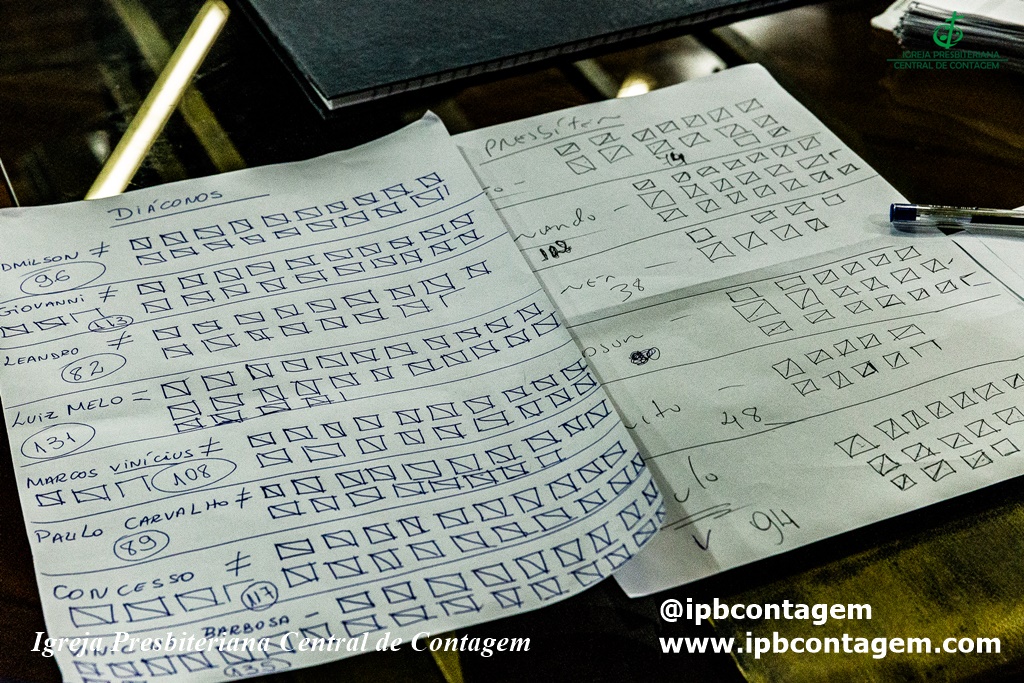 IGREJA PRESBITERIANA
CENTRAL DE CONTAGEM
DIÁCONOS
DMILSON ≠
96
GIOVANNI ≠
113
LEANDRO ≠
82
LUIZ MELO =
131
MARCOS VINÍCIUS ≠
108
PAULO CARVALHO ≠
89
CONCESSO ≠
117
BARBOSA -
PRESBÍTER
NANDO -
38
48
94
@ipbcontagem
www.ipbcontagem.com
Igreja Presbiteriana Central de Contagem